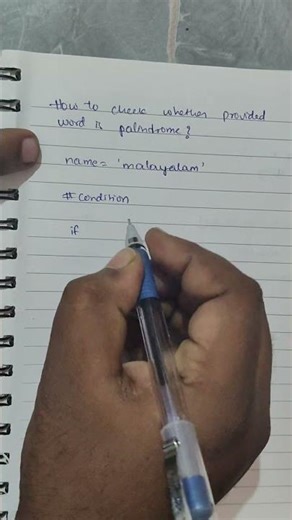 How to check whether provided
word is palindrome?
name = 'malayalam'
# condition
if